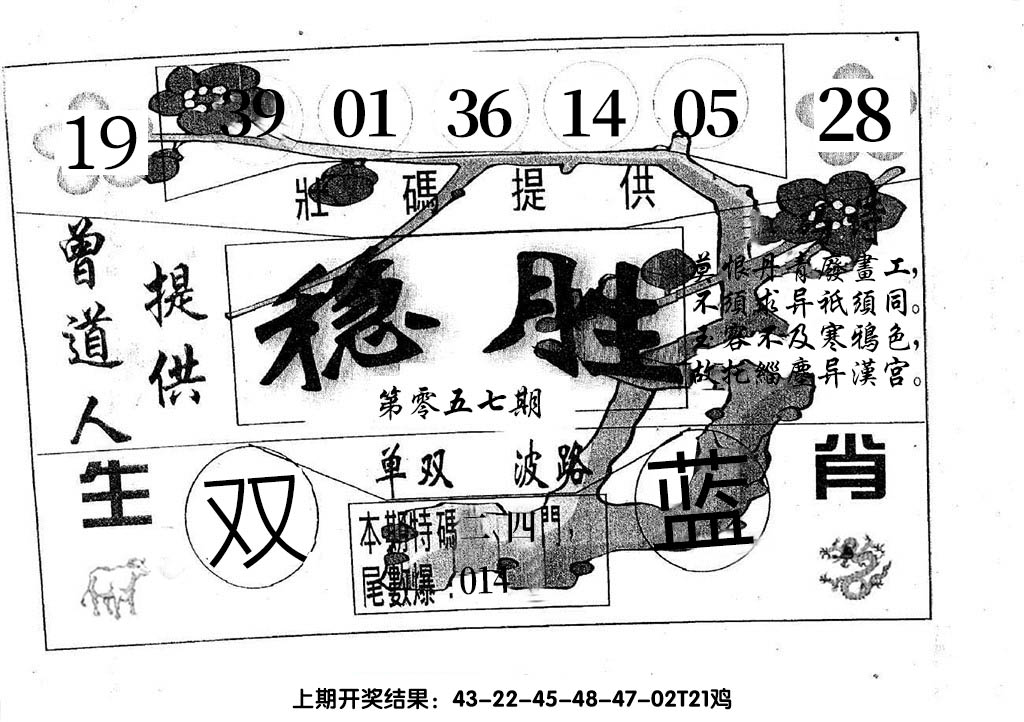 19 39 01 36 14 05 28
壯碼提供
特
曾道人
提供
稳胜
第零五七期
莫恨丹青廢畫工，
不須求异祇須同。
玉容不及寒鴉色，
故托緇塵异漢宫。
生肖
单双 波路
双
蓝
本期特碼二、四門，
尾數爆：014
上期开奖结果：43-22-45-48-47-02T21鸡